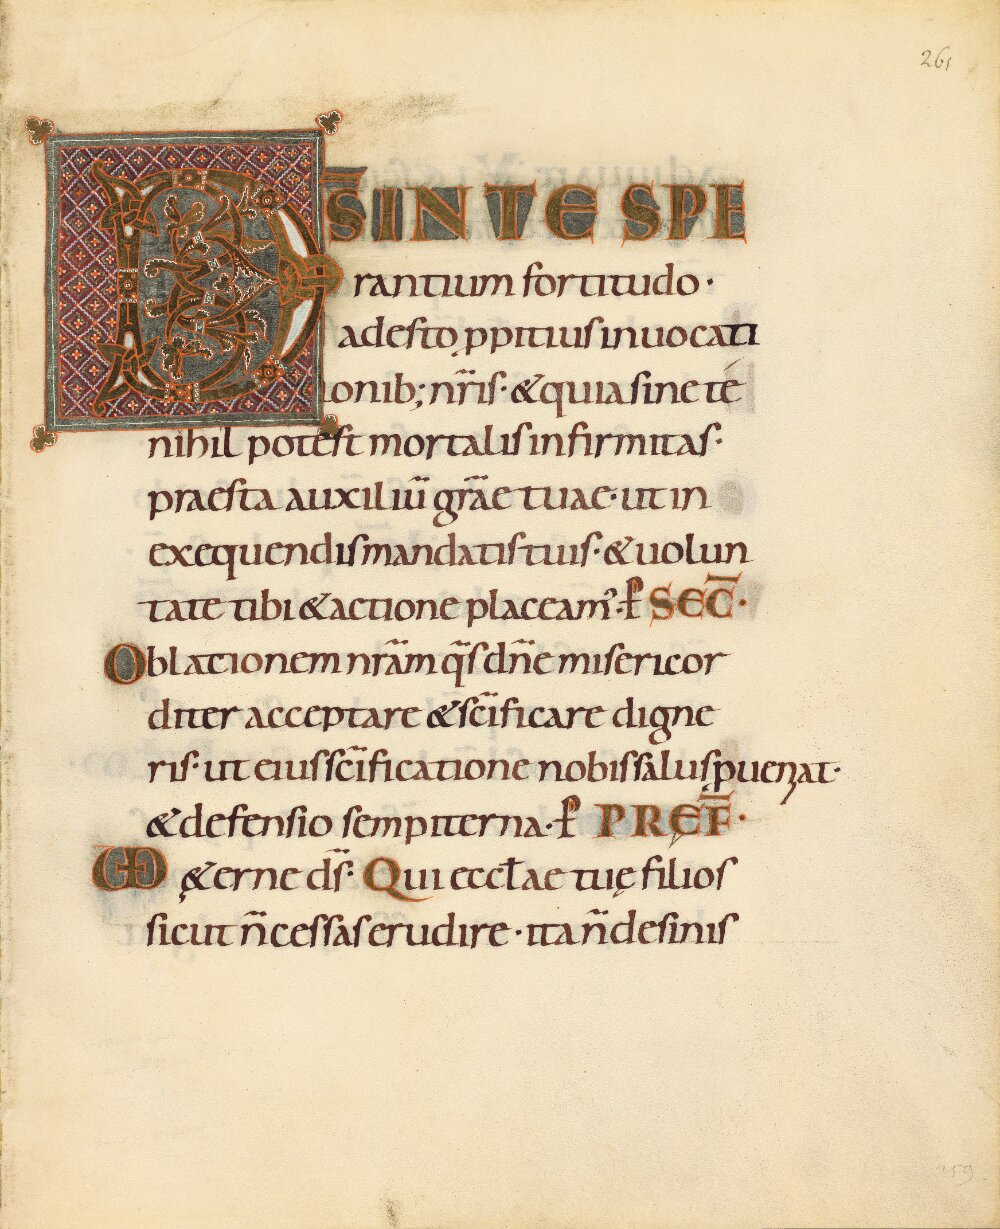 261
DS̄ IN TE SPE
rantium fortitudo·
adesto ꝓpitius inuocati
onib; nr̄is· &quia sine té
nihil potest mortalis infirmitas·
praesta auxiliū gr̄ae tuae· ut in
exequendis mandatis tuis· & uolun
tate tibi & actione placeam᾽· ꝑ SEC̄·
Oblationem nr̄am q̄s dn̄e misericor
diter acceptare & sc̄ificare digne
ris· ut eius sc̄ificatione nobis salus ꝓueniat·
& defensio sempiterna· ꝑ PREF̄·
UD &erne ds̄· Qui eccƚae tuę filios
sicut n̄ cessas erudire· ita n̄ desinis
259